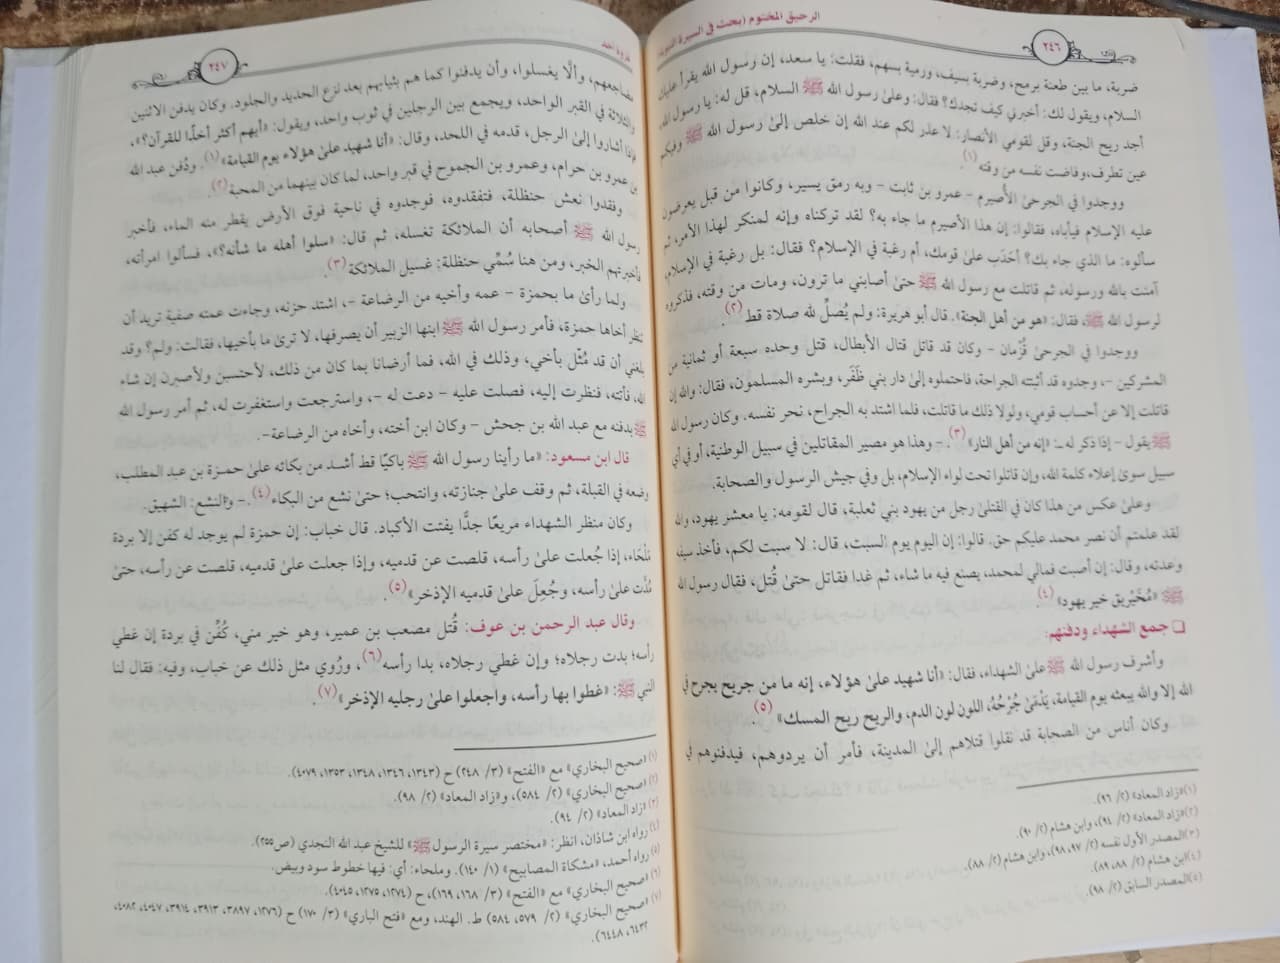 ٢٤٦
الرحيق المختوم (بحث في السيرة النبوية
ضربة، ما بين طعنة برمح، وضربة بسيف، ورمية بسهم، فقلت: يا سعد، إن رسول الله يقرأ عليك
السلام، ويقول لك: أخبرني كيف تجدك؟ فقال: وعلىٰ رسول الله ﷺ السلام، قل له: يا رسول الله،
أجد ريح الجنة، وقل لقومي الأنصار: لا عذر لكم عند الله إن خلص إلىٰ رسول الله ﷺ وفيكم
عين تطرف، وفاضت نفسه من وقته (١)
ووجدوا في الجرحىٰ الأُصيرم - عمرو بن ثابت - وبه رمق يسير، وكانوا من قبل يعرضون
عليه الإسلام فيأباه، فقالوا: إن هذا الأصيرم ما جاء به؟ لقد تركناه وإنه لمنكر لهذا الأمر، ثم
سألوه: ما الذي جاء بك؟ أحَدَب علىٰ قومك، أم رغبة في الإسلام؟ فقال: بل رغبة في الإسلام،
آمنت بالله ورسوله، ثم قاتلت مع رسول الله ﷺ حتىٰ أصابني ما ترون، ومات من وقته، فذكروه
لرسول الله ﷺ، فقال: «هو من أهل الجنة». قال أبو هريرة: ولم يُصَلِّ لله صلاة قط (٢).
ووجدوا في الجرحىٰ قُزْمان - وكان قد قاتل قتال الأبطال، قتل وحده سبعة أو ثمانية من
المشركين -، وجدوه قد أثبتته الجراحة، فاحتملوه إلىٰ دار بني ظَفَر، وبشره المسلمون، فقال: والله إن
قاتلت إلا عن أحساب قومي، ولولا ذلك ما قاتلت، فلما اشتد به الجراح، نحر نفسه. وكان رسول الله
ﷺ يقول - إذا ذكر له -: «إنه من أهل النار» (٣). - وهذا هو مصير المقاتلين في سبيل الوطنية، أو في أي
سبيل سوىٰ إعلاء كلمة الله، وإن قاتلوا تحت لواء الإسلام، بل وفي جيش الرسول والصحابة.
وعلىٰ عكس من هذا كان في القتلىٰ رجل من يهود بني ثعلبة، قال لقومه: يا معشر يهود، والله
لقد علمتم أن نصر محمد عليكم حق. قالوا: إن اليوم يوم السبت، قال: لا سبت لكم، فأخذ سيفه
وعدته، وقال: إن أصبت فمالي لمحمد، يصنع فيه ما شاء، ثم غدا فقاتل حتىٰ قُتل، فقال رسول الله
ﷺ «مُخَيْرِيق خير يهود» (٤).
❏ جمع الشهداء ودفنهم:
وأشرف رسول الله ﷺ علىٰ الشهداء، فقال: «أنا شهيد علىٰ هؤلاء، إنه ما من جريح يجرح في
الله إلا والله يبعثه يوم القيامة، يَدْمَىٰ جُرْحُهُ، اللون لون الدم، والريح ريح المسك» (٥).
وكان أناس من الصحابة قد نقلوا قتلاهم إلىٰ المدينة، فأمر أن يردوهم، فيدفنوهم في
(١) «زاد المعاد» (٢/ ٩٦).
(٢) «زاد المعاد» (٢/ ٩٤)، وابن هشام (٢/ ٩٠).
(٣) المصدر الأول نفسه (٢/ ٩٧، ٩٨)، وابن هشام (٢/ ٨٨).
(٤) ابن هشام (٢/ ٨٨، ٨٩).
(٥) المصدر السابق (٢/ ٩٨).
غزوة أحد
٢٤٧
مضاجعهم، وألَّا يغسلوا، وأن يدفنوا كما هم بثيابهم بعد نزع الحديد والجلود. وكان يدفن الاثنين
والثلاثة في القبر الواحد، ويجمع بين الرجلين في ثوب واحد، ويقول: «أيهم أكثر أخذًا للقرآن؟»،
فإذا أشاروا إلىٰ الرجل، قدمه في اللحد، وقال: «أنا شهيد علىٰ هؤلاء يوم القيامة» (١). ودُفن عبد الله
بن عمرو بن حرام، وعمرو بن الجموح في قبر واحد، لما كان بينهما من المحبة (٢).
وفقدوا نعش حنظلة، فتفقدوه، فوجدوه في ناحية فوق الأرض يقطر منه الماء، فأخبر
رسول الله ﷺ أصحابه أن الملائكة تغسله، ثم قال: «سلوا أهله ما شأنه؟»، فسألوا امرأته،
فأخبرتهم الخبر، ومن هنا سُمِّي حنظلة: غسيل الملائكة (٣).
ولما رأىٰ ما بحمزة - عمه وأخيه من الرضاعة -، اشتد حزنه، وجاءت عمته صفية تريد أن
تنظر أخاها حمزة، فأمر رسول الله ﷺ ابنها الزبير أن يصرفها، لا ترىٰ ما بأخيها، فقالت: ولم؟ وقد
بلغني أن قد مُثِّل بأخي، وذلك في الله، فما أرضانا بما كان من ذلك، لأحتسبن ولأصبرن إن شاء
الله، فأتته، فنظرت إليه، فصلت عليه - دعت له -، واسترجعت واستغفرت له، ثم أمر رسول الله
ﷺ بدفنه مع عبد الله بن جحش - وكان ابن أخته، وأخاه من الرضاعة-.
قال ابن مسعود: «ما رأينا رسول الله ﷺ باكيًا قط أشد من بكائه علىٰ حمزة بن عبد المطلب،
وضعه في القبلة، ثم وقف علىٰ جنازته، وانتحب؛ حتىٰ نشع من البكاء (٤). - والنشع: الشهيق.
وكان منظر الشهداء مريعًا جدًّا يفتت الأكباد. قال خباب: إن حمزة لم يوجد له كفن إلا بردة
مَلْحَاء، إذا جُعلت علىٰ رأسه، قلصت عن قدميه، وإذا جعلت علىٰ قدميه، قلصت عن رأسه، حتىٰ
مُدَّت علىٰ رأسه، وجُعِلَ علىٰ قدميه الإذخر» (٥).
وقال عبد الرحمن بن عوف: قُتل مصعب بن عمير، وهو خير مني، كُفِّن في بردة إن غطي
رأسه؛ بدت رجلاه؛ وإن غطي رجلاه، بدا رأسه (٦)، ورُوي مثل ذلك عن خباب، وفيه: فقال لنا
النبي ﷺ: «غطوا بها رأسه، واجعلوا علىٰ رجليه الإذخر» (٧).
(١) «صحيح البخاري» مع «الفتح» (٣/ ٢٤٨) ح (١٣٤٣، ١٣٤٦، ١٣٤٨، ١٣٥٣، ٤٠٧٩).
(٢) «صحيح البخاري» (٢/ ٥٨٤)، و«زاد المعاد» (٢/ ٩٨).
(٣) «زاد المعاد» (٢/ ٩٤).
(٤) رواه ابن شاذان، انظر: «مختصر سيرة الرسول ﷺ» للشيخ عبد الله النجدي (ص٢٥٥).
(٥) رواه أحمد، «مشكاة المصابيح» (١/ ١٤٠). وملحاء: أي: فيها خطوط سود وبيض.
(٦) «صحيح البخاري» مع «الفتح» (٣/ ١٦٨، ١٦٩)، ح (١٢٧٤، ١٢٧٥، ٤٠٤٥).
(٧) «صحيح البخاري» (٢/ ٥٧٩، ٥٨٤) ط. الهند، ومع «فتح الباري» (٣/ ١٧٠) ح (١٢٧٦، ٣٨٩٧، ٣٩١٣، ٣٩١٤، ٤٠٤٧، ٤٠٨٢،
٦٤٣٢، ٦٤٤٨).